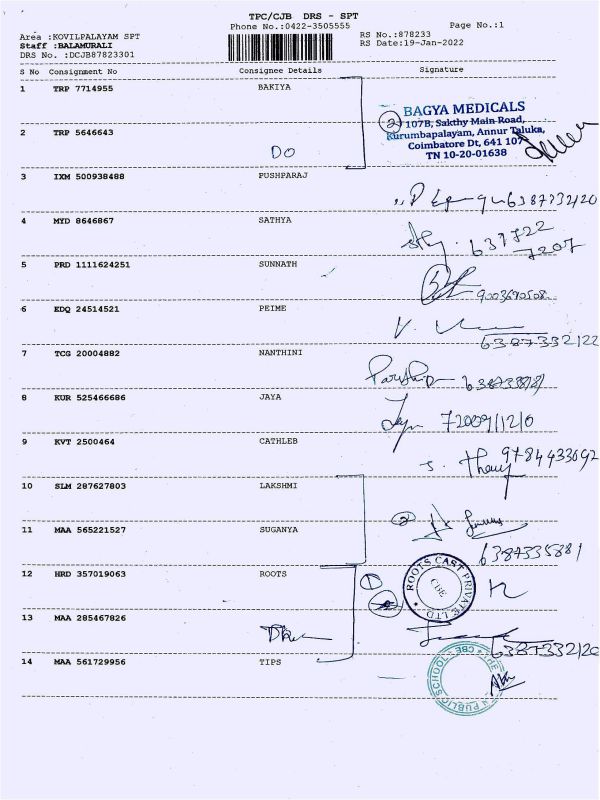 TPC/CJB DRS - SPT
Phone No.:0422-3505555
Page No.:1
Area :KOVILPALAYAM SPT
Staff :BALAMURALI
DRS No. :DCJB87823301
RS No.:878233
RS Date:19-Jan-2022
S No Consignment No Consignee Details Signature
1 TRP 7714955 BAKIYA
BAGYA MEDICALS
107B, Sakthy Main Road,
Kurumbapalayam, Annur Taluka,
Coimbatore Dt, 641 107
TN 10-20-01638
2
2 TRP 5646643
DO
3 IXM 500938488 PUSHPARAJ
4 MYD 8646867 SATHYA
637722
7207
5 PRD 1111624251 SUNNATH
9003690508
6 EDQ 24514521 PEIME
6387332122
7 TCG 20004882 NANTHINI
8 KUR 525466686 JAYA
9 KVT 2500464 CATHLEB
9784433092
10 SLM 287627803 LAKSHMI
11 MAA 565221527 SUGANYA
2
6387335881
12 HRD 357019063 ROOTS
1
ROOTS CAST PRIVATE LTD
CBE
13 MAA 285467826
6387332120
14 MAA 561729956 TIPS
PUBLIC SCHOOL - CBE